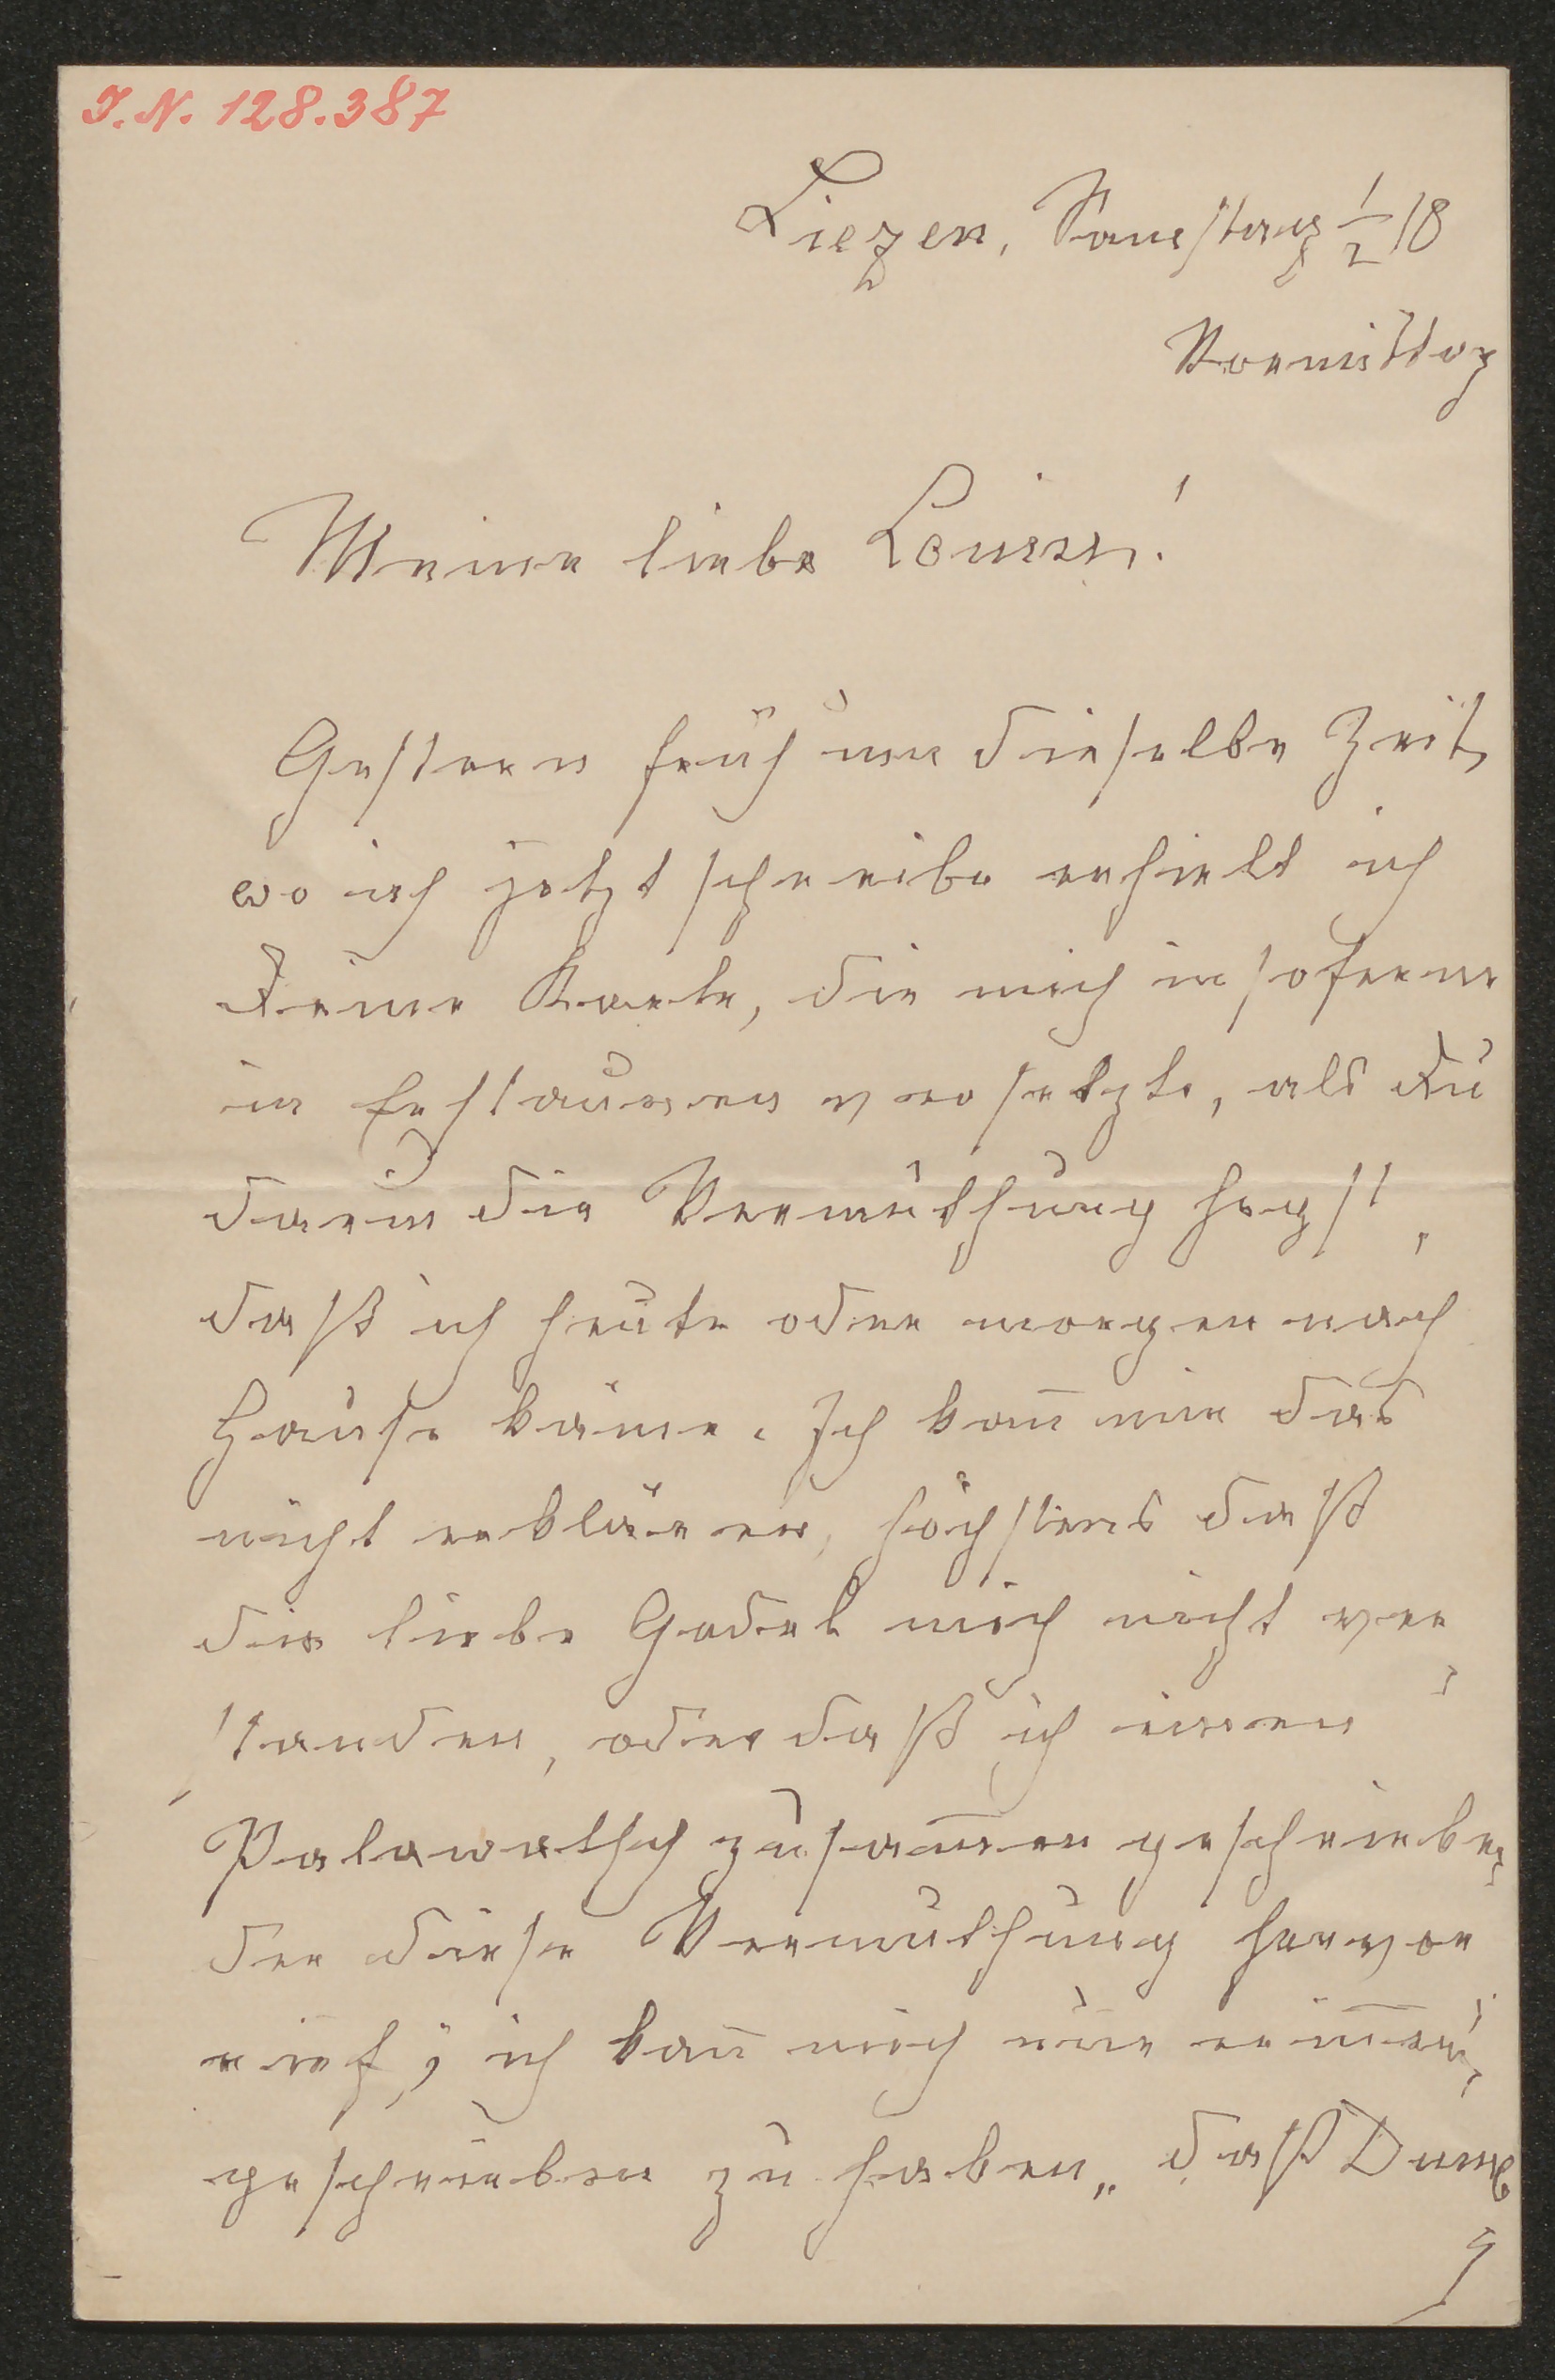 I. N. 128.387
Liezen, Samstag 1/2 18
Vormittag
Meine liebe Louise!
Gestern früh um dieselbe Zeit,
wo ich jetzt schreibe erhielt ich
Deine Karte, die mich insoferne
in Erstaunen versetzte, als Du
darin die Vermuthung hegst,
daß ich heute oder morgen nach
Hause käme. Ich kan̄ mir das
nicht erklären, höchstens daß
die liebe Godel mich nicht ver
standen, oder daß ich einen
Palawatsch zusam̄en geschrieben,
der diese Vermuthung hervor
rief; ich kan̄ mich nur erin̄ern,
geschrieben zu haben „ daß Dumb